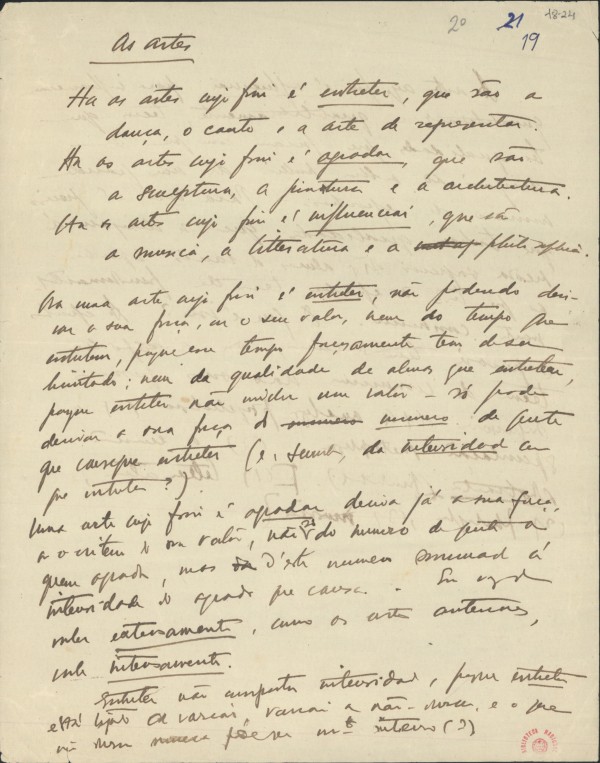 2º 21 18-24
19
As artes
Ha as artes cujo fim é entreter, que são a
dança, o canto e a arte de representar.
Ha as artes cujo fim é agradar, que são
a sculptura, a pintura e a architectura.
Ha as artes cujo fim é influenciar, que são
a musica, a litteratura e a philosophia.
Ora uma arte cujo fim é entreter, não podendo deri-
var a sua força, ou o seu valor, nem do tempo que
entretem, porque esse tempo forçosamente tem de ser
limitado; nem da qualidade de almas que entretem,
porque entreter não inclue um valor — só pode
derivar a sua força do numero de gente
que consegue entreter (e, da intensidade com
que entretem?).
Uma arte cujo fim é agradar deriva já a sua força,
e o criterio do seu valor, não só do numero de gente a
quem agrada, mas d'este numero sommado á
intensidade do agrado que causa. Em vez de
valer extensamente, como as artes anteriores,
vale intensamente.
Entreter não comporta intensidad, porque entreter
é variar, variar a não-
inteiro (?)
BIBLIOTECA NACIONAL